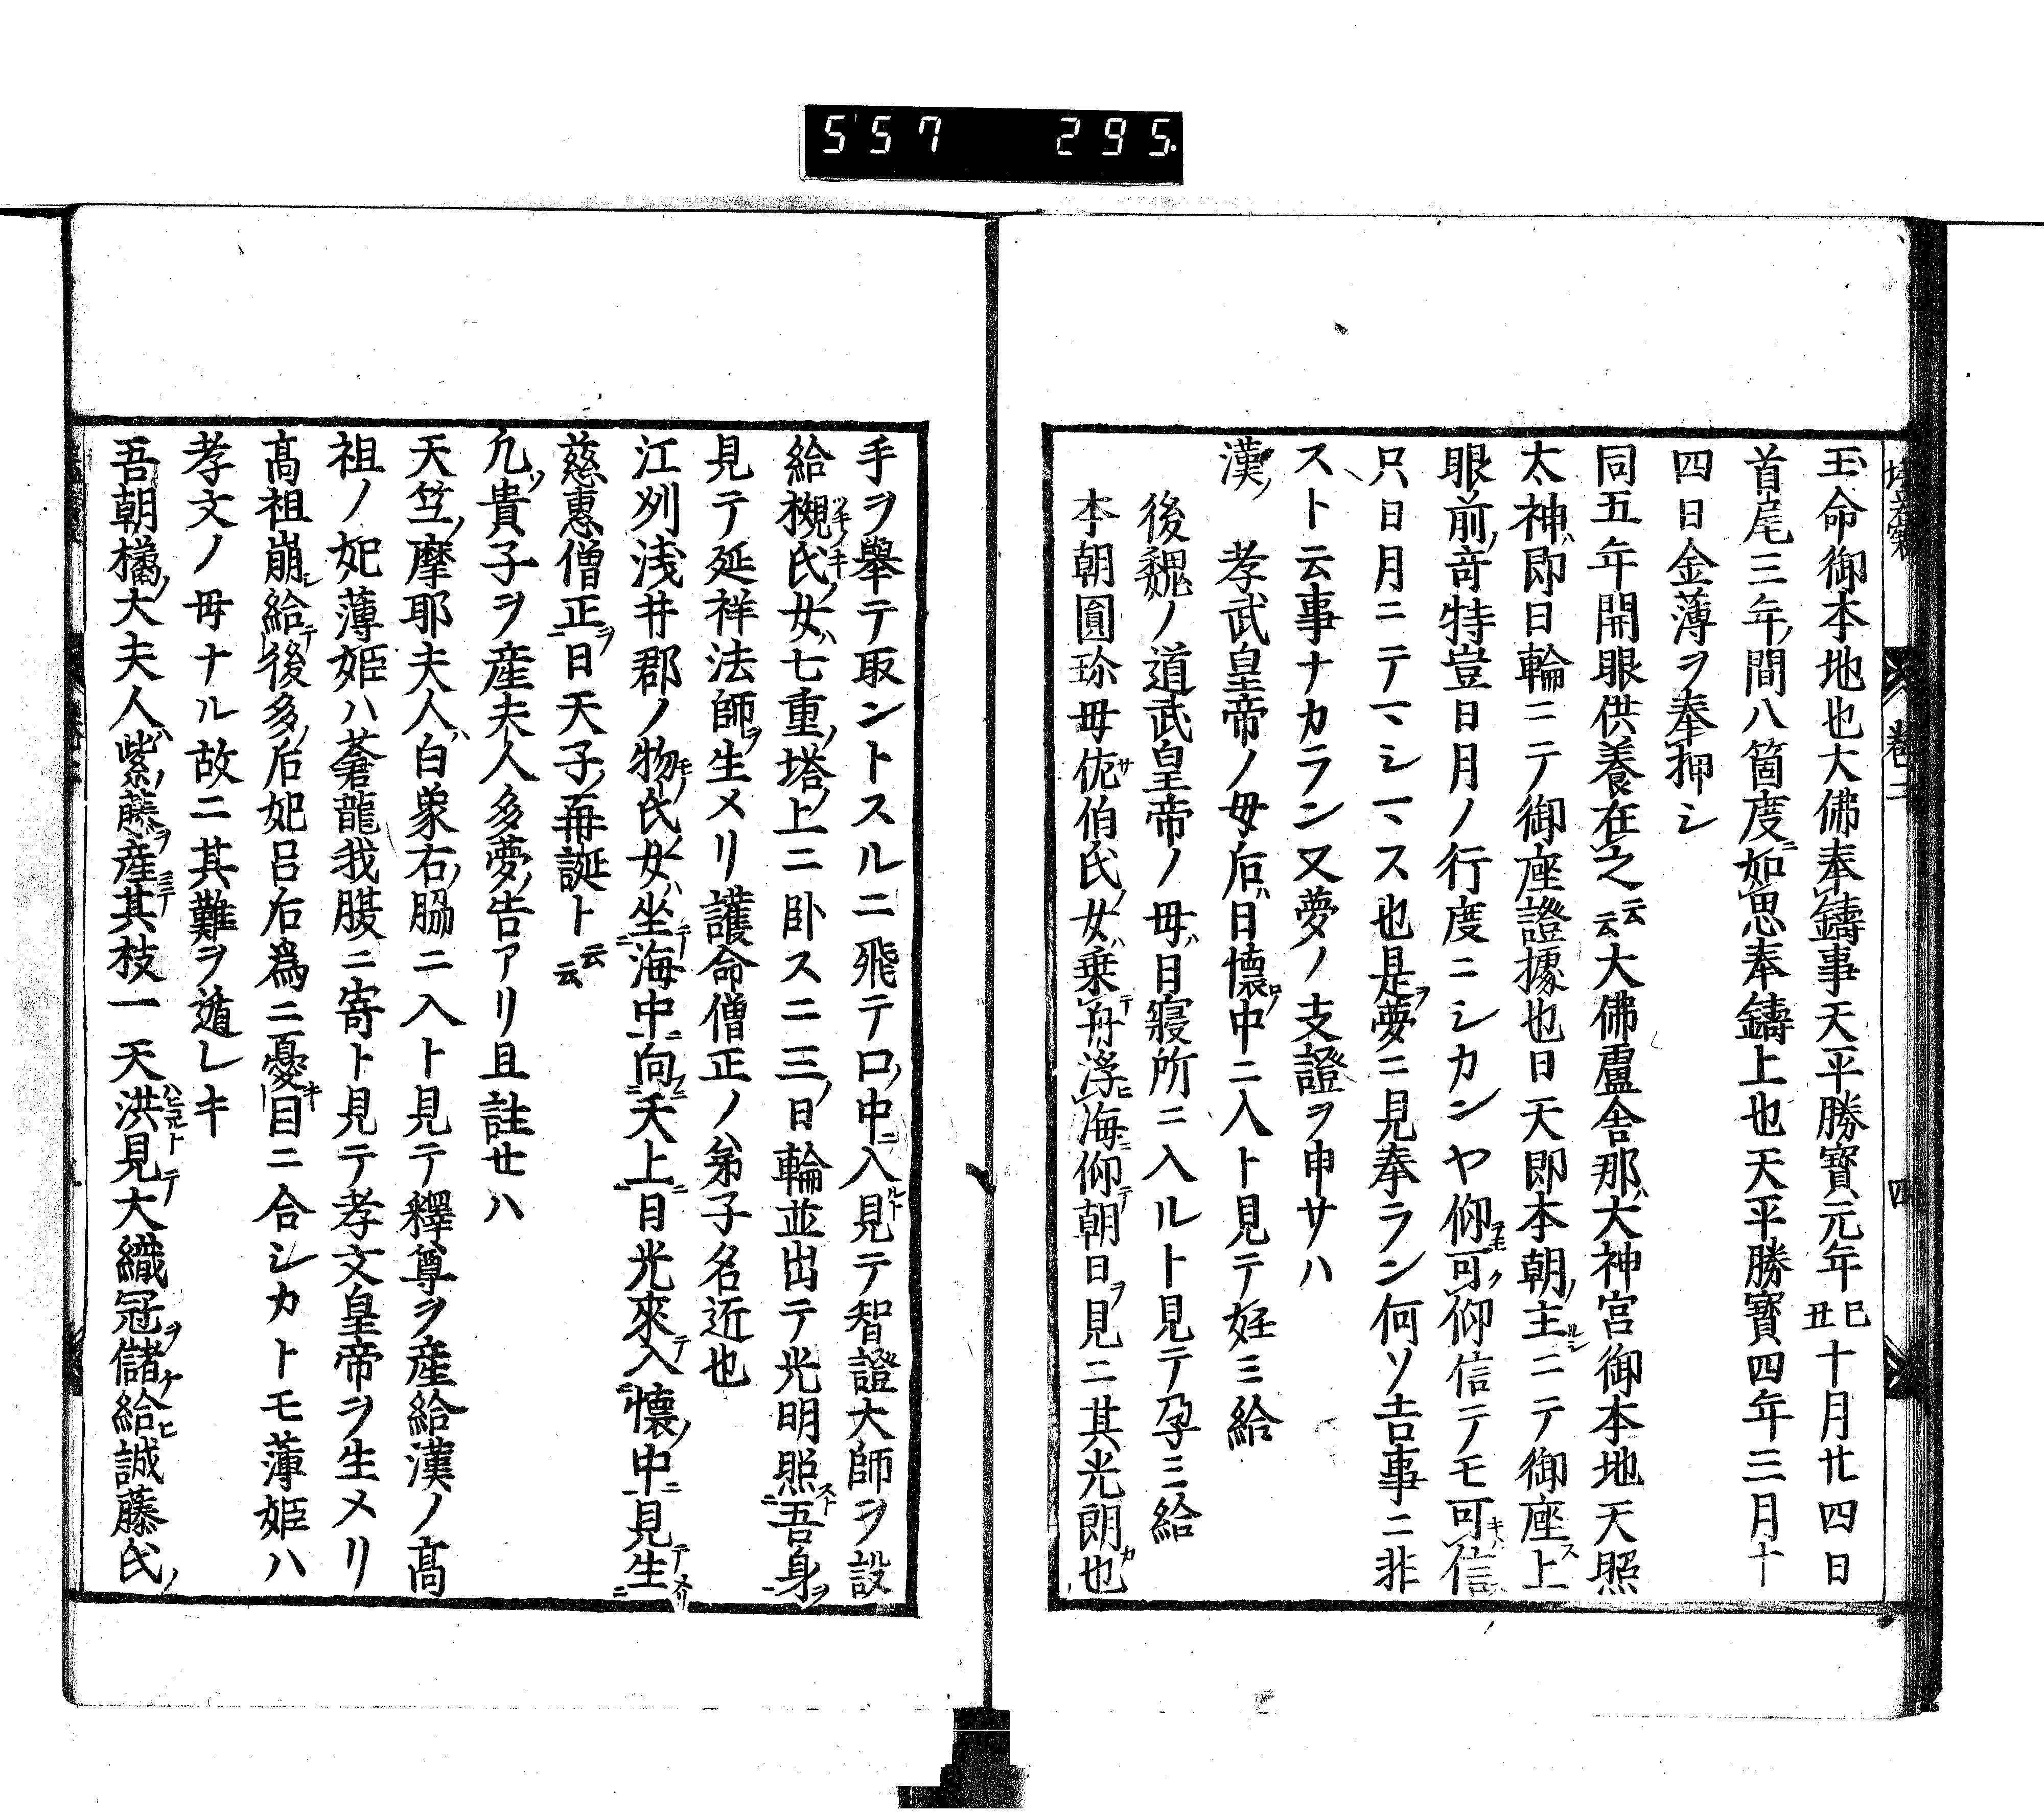 557 295.
玉命御本地也大佛奉鑄事天平勝寳元年己丑十月廿四日
首尾三年ノ間八箇度ニ如思奉鑄上也天平勝寳四年三月十
四日金薄ヲ奉押シ
同五年開眼供養在之云云大佛盧舎那ハ大神宮御本地天照
太神ハ即日輪ニテ御座證據也日天即本朝ノ主ルシニテ御座上ス
眼前ノ竒特豈日月ノ行度ニシカンヤ仰可仰信テモ可信
只日月ニテマシマス也是夢ヲニ見奉ラン何ソ吉事ニ非
スト云事ナカラン又夢ノ支證ヲ申サハ
漢ノ孝武皇帝ノ母后ハ日懷ロノ中ニ入ト見テ妊ミ給
後魏ノ道武皇帝ノ母ハ日寢所ニ入ルト見テ孕ミ給
本朝圓珎母佐サ伯氏ノ女ハ乗テ舟浮ヒ海ニ仰テ朝日ヲ見ニ其光朗カ也
巻二
四
手ヲ擧テ取ントスルニ飛テ口ノ中ニ入ルト見テ智證大師ヲ設
給槻ツキノキ氏ノ女ハ七重ノ塔ノ上ニ卧スニ三ノ日輪並出テ光明照スト吾身ヲ
見テ延祥法師ヲ生メリ護命僧正ノ弟子名近也
江刕浅井郡ノ物モノ氏ノ女ハ坐テ海中ニ向テ天上ニ日光來入テ懷ノ中ニ見テ生
慈惠僧正ヲ日天子ノ再誕ト云云
凢ソ貴子ヲ産夫人多夢ノ告アリ且註せハ
天竺ノ摩耶夫人ハ白象右ノ脇ニ入ト見テ釋尊ヲ産給漢ノ髙
祖ノ妃薄姫ハ蒼龍我腹ニ寄ト見テ孝文皇帝ヲ生メリ
髙祖崩シ給テ後多ノ后妃吕后爲ニ憂キ目ニ合シカトモ薄姫ハ
孝文ノ母ナル故ニ其難ヲ遁レキ
吾朝橘ノ大夫人ハ紫ノ藤ヲ産其枝一天洪ハヒコルト見テ大織冠ヲ儲ケ給ヒ誠藤氏ノ